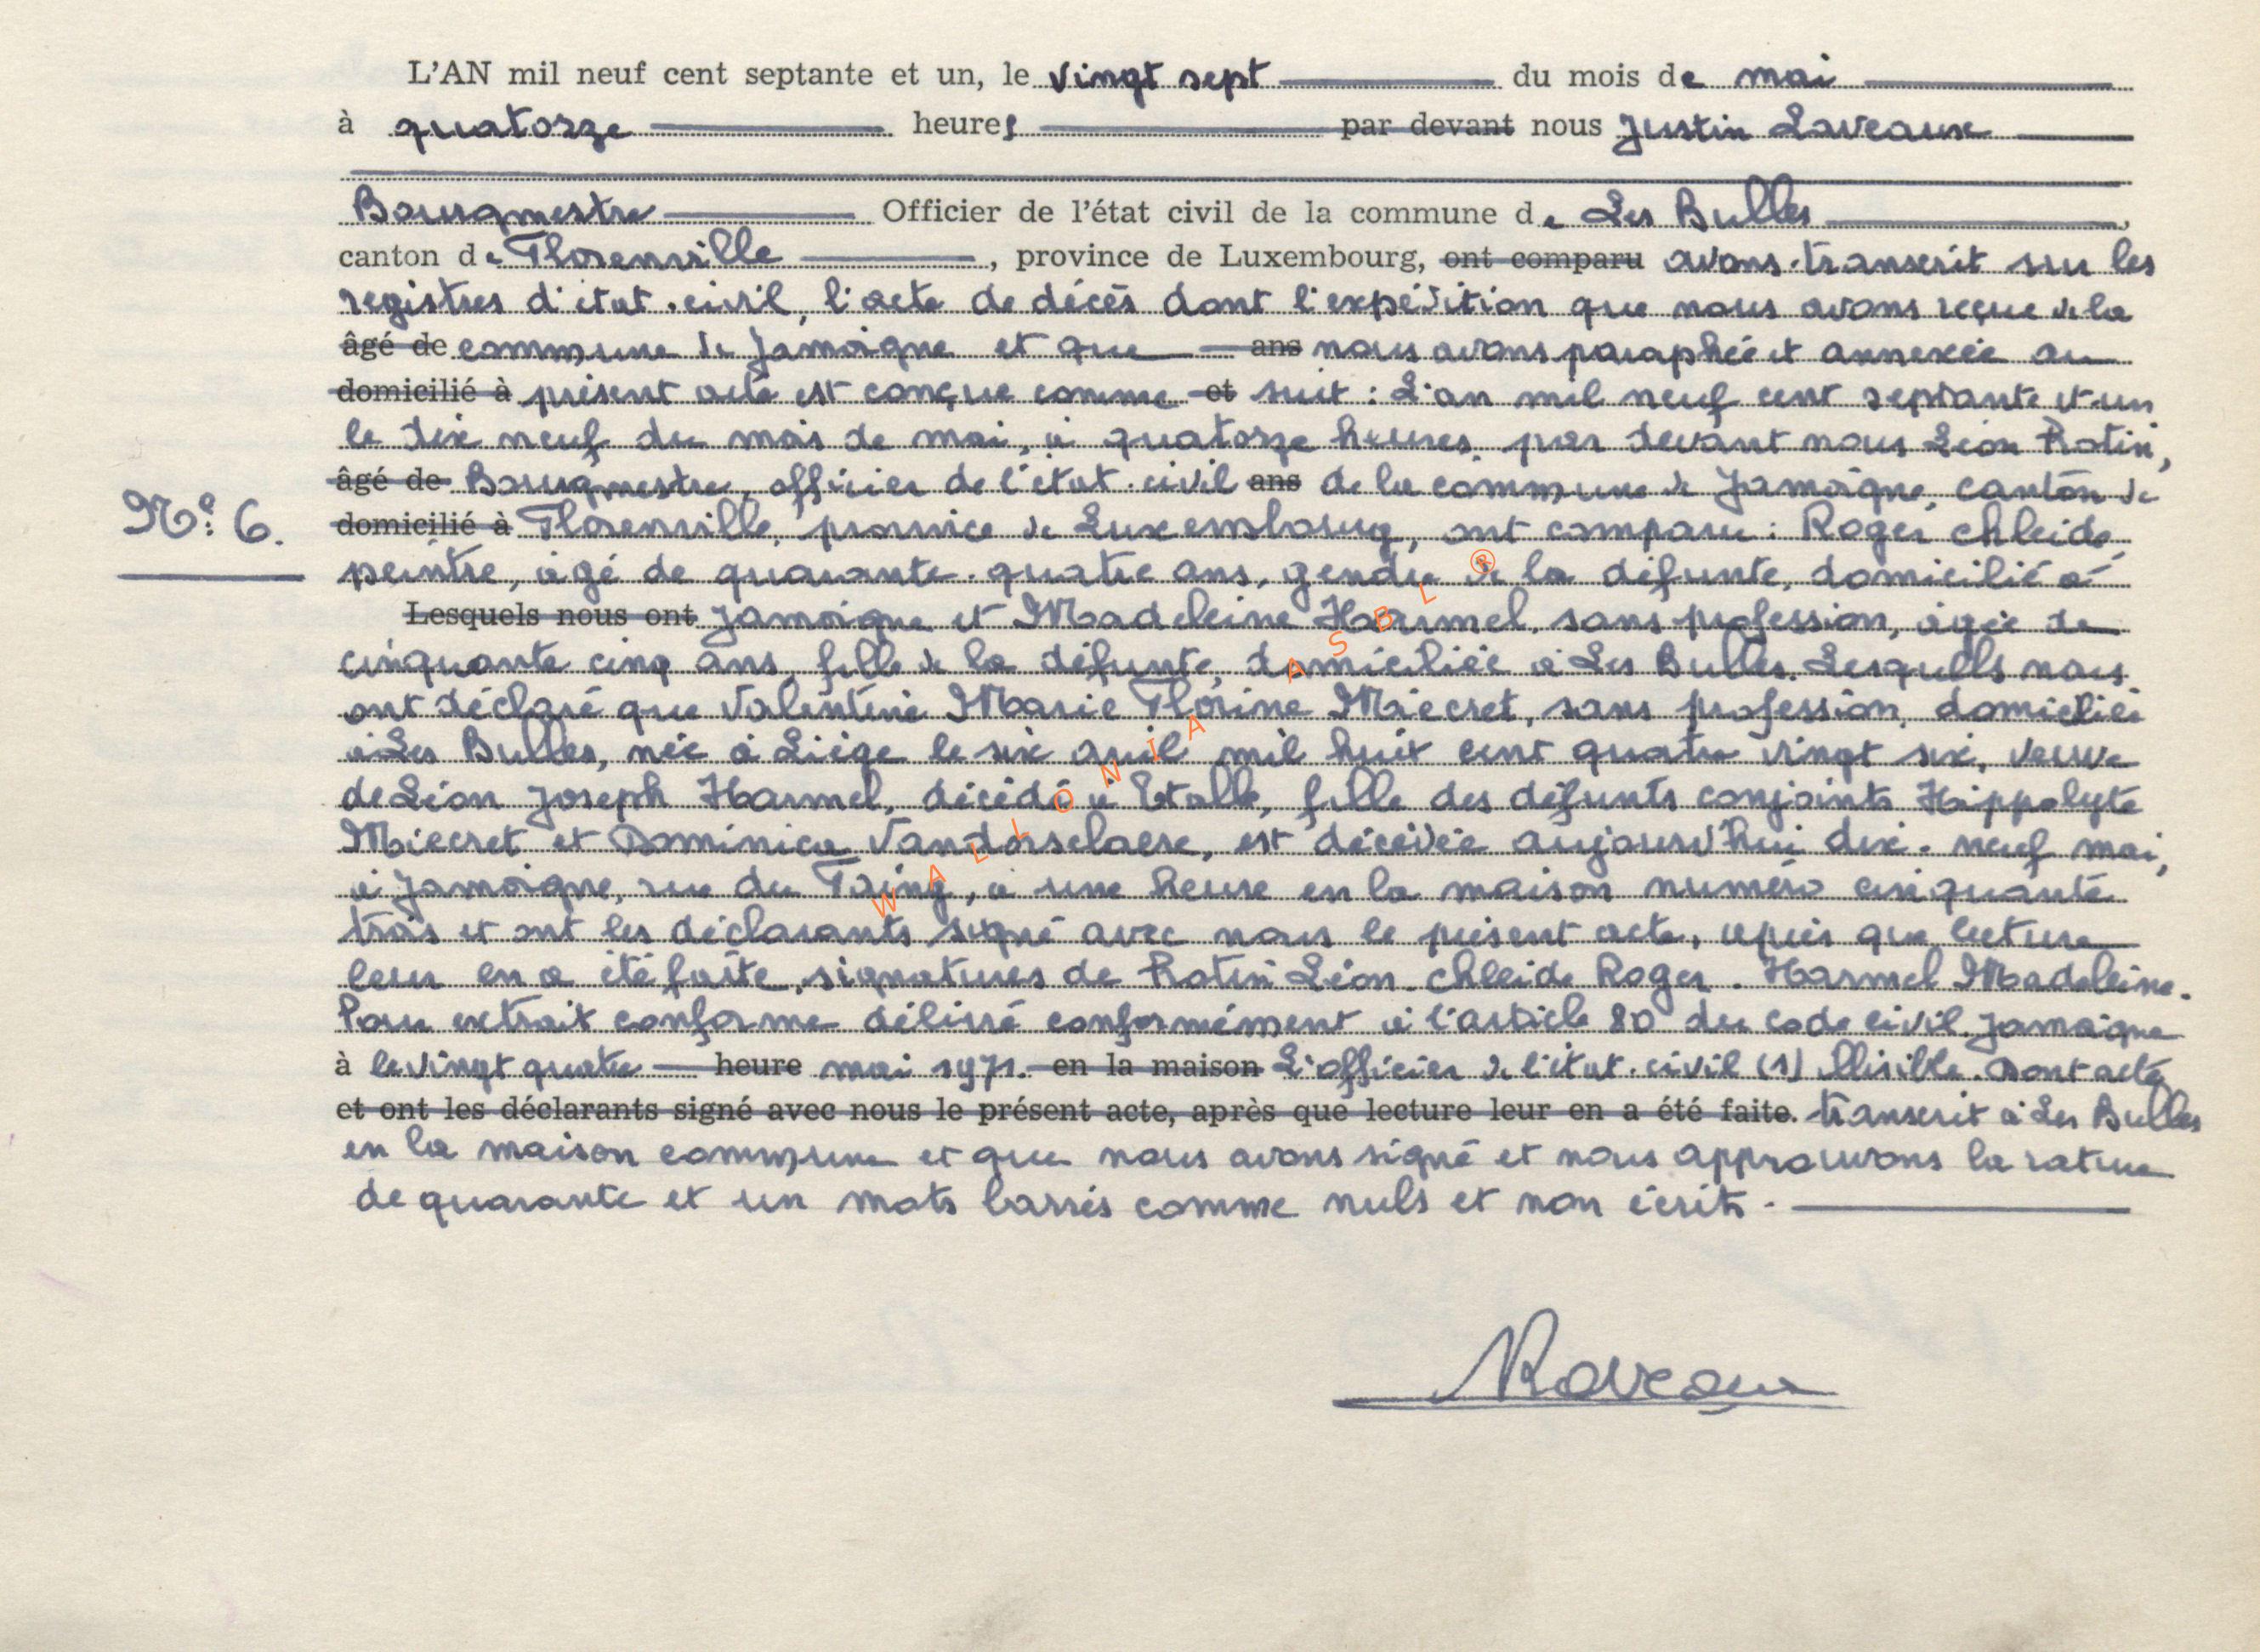 L'AN mil neuf cent septante et un, le vingt sept du mois de mai
à quatorze heures par devant nous Justin Laveaux
Bourgmestre Officier de l'état civil de la commune de Les Bulles,
canton de Florenville, province de Luxembourg, ont comparu avons transcrit sur les
registres d'état-civil, l'acte de décès dont l'expédition que nous avons reçue de la
âgé de commune de Jamoigne et que ans nous avons paraphée et annexée au
domicilié à présent acte est conçue comme et suit : L'an mil neuf cent septante et un
le dix neuf du mois de mai, à quatorze heures, par devant nous Léon Rotin,
âgé de Bourgmestre, officier de l'état-civil ans de la commune de Jamoigne, canton de
N°: 6. domicilié à Florenville, province de Luxembourg, ont comparu : Roger Chleide,
peintre, âgé de quarante-quatre ans, gendre de la défunte, domicilié à
Lesquels nous ont Jamoigne et Madeleine Harmel, sans profession, âgée de
cinquante cinq ans, fille de la défunte, domiciliée à Les Bulles. Lesquells nous
ont déclaré que Valentine Marie Florine Miecret, sans profession, domiciliée
à Les Bulles, née à Liège le six avril mil huit cent quatre vingt six, veuve
de Léon Joseph Harmel, décédé à Etalle, fille des défunts conjoints Hippolyte
Miecret et Dominica Vandorselaere, est décédée aujourd'hui dix-neuf mai,
à Jamoigne, rue du Faing, à une heure en la maison numéro cinquante
trois et ont les déclarants signé avec nous le présent acte, après que lecture
leur en a été faite, signatures de Rotin Léon. Chleide Roger. Harmel Madeleine.
Pour extrait conforme délivré conformément à l'article 80 du code civil. Jamoigne
à le vingt quatre heure mai 1971. en la maison L'officier de l'état-civil (1) Illisible. Dont acte
et ont les déclarants signé avec nous le présent acte, après que lecture leur en a été faite. transcrit à Les Bulles
en la maison commune et que nous avons signé et nous approuvons la rature
de quarante et un mots barrés comme nuls et non écrits.
Laveaux
WALLONIA ASBL ®